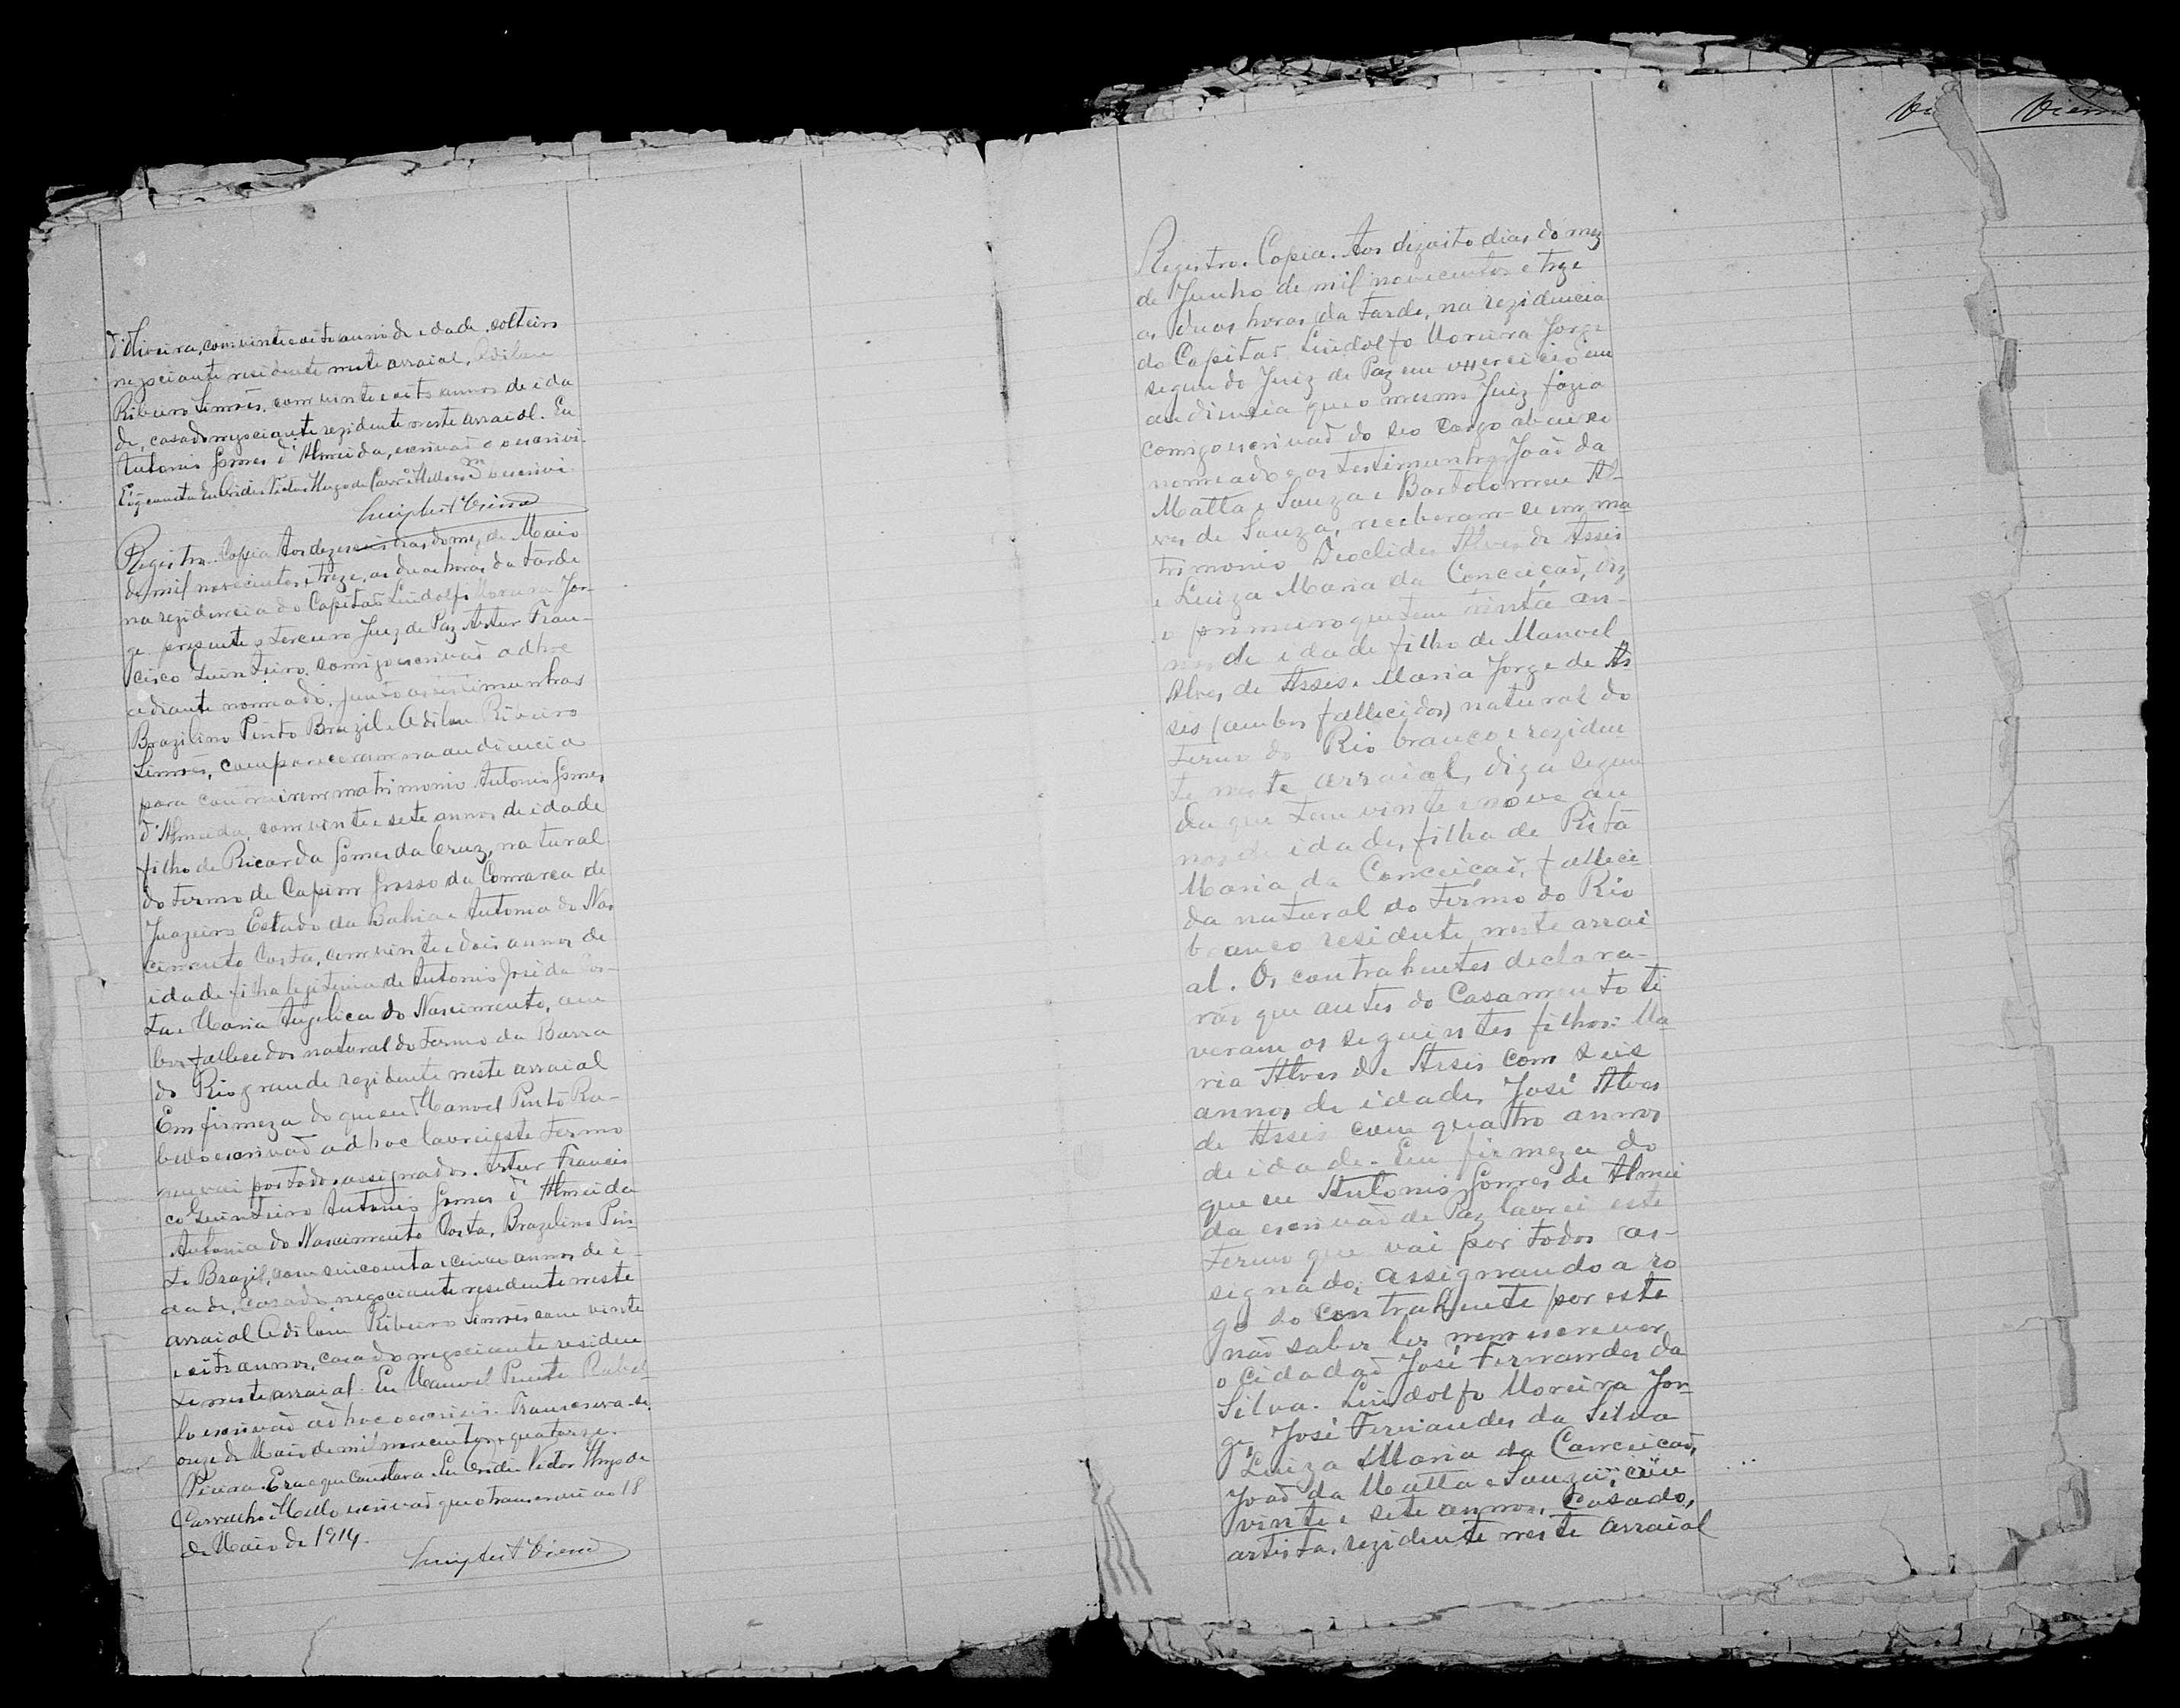 d'Oliveira, com vinte e oito annos de edade, solteiro
negociante residente neste arraial, Adilau
Ribeiro Simões, com vinte e oito annos de ida
de, casado negociante rezidente neste arraial. Eu
Antonio Gomes d'Almeida, escrivaõ o escrivi.
Registro. Copia. Aos dezeseis dias do mez de Maio
de mil novecentos e treze, as duas horas da tarde
na rezidencia do Capitaõ Lindolfo Moreira Jor-
ge presente o terceiro Juiz de Paz Artur Fran-
cisco Quinteiro, comigo escrivaõ adhoc
adiante nomeado, junto as testimunhas
Brazilino Pinto Brazil e Adilau Ribeiro
Simões, compareceram na audiencia
para contrairem matrimonio Antonio Gomes
d'Almeida, com vinte e sete annos de idade
filho de Ricarda Gomes da Cruz, natural
do termo de Capim Grosso da Comarca de
Juazeiro Estado da Bahia e Antonia do Nas
cimento Costa, com vinte e dois annos de
idade filha legitima de Antonio José da Cos-
ta e Maria Angelica do Nascimento, am
bos fallecidos natural do termo da Barra
do Rio grande rezidente neste arraial
Em firmeza do que eu Manoel Pinto Ra-
bello escrivaõ adhoc lavrei este termo
que vai por todos assignados. Artur Francis
co Quinteiro Antonio Gomes d'Almeida
Antonia do Nascimento Costa, Brazilino Pin
to Brazil, com cincoenta e cinco annos de i-
dade, casado, negociante residente neste
arraial Adilau Ribeiro Simões com vinte
e oito annos, casado negociante residen
te neste arraial. Eu Manoel Pinto Rabel
lo escrivaõ adhoc o escrivi. Transcreva-se.
onze de Maio de mil novecentos e quatorze.
Vianna. Era o que constava. Eu Euclides Victor Hugo de
Carvalho Mello escrivaõ que o transcrevi ao 18
de Maio de 1914.
Registro. Copia. Aos dizoito dias do mez
de Junho de mil novecentos e treze
as duas horas da tarde, na rezidencia
do Capitaõ Lindolfo Moreira Jorge
segundo Juiz de Paz em exercicio em
audiencia que o mesmo Juiz fazia
comigo escrivaõ do seo cargo abaixo
nomeado e as testimunhas Joaõ da
Matta e Souza e Bartolomeu Al-
ves de Souza, receberam-se em ma
trimonio Deoclides Alves de Assis
e Luiza Maria da Conceiçaõ, diz
o primeiro que tem trinta an-
nos de idade filho de Manoel
Alves de Asses e Maria Jorge de As
ses (ambos fallecidos) natural do
termo do Rio branco e reziden
te neste arraial, diz a segun
da que tem vinte e nove an
nos de idade, filha de Rita
Maria da Conceiçaõ, falleci
da natural do termo do Rio
branco residente neste arrai
al. Os contrahentes declara-
raõ que antes do Casamento ti
veram os seguintes filhos: Ma
ria Alves de Assis com seis
annos de idade, José Alves
de Assis com quatro annos
de idade. Em firmeza do
que eu Antonio Gomes de Almei
da escrivaõ de Paz lavrei este
termo que vai por todos as-
signado, assignando a ro
go do contrahente por este
naõ saber ler nem escrever
o Cidadaõ José Fernandes da
Silva. Lindolfo Moreira Jor-
ge José Fernandes da Silva
Luiza Maria da Conceiçaõ,
Joaõ da Matta e Souza, com
vinte e sete annos, casado,
artista, rezidente neste arraial